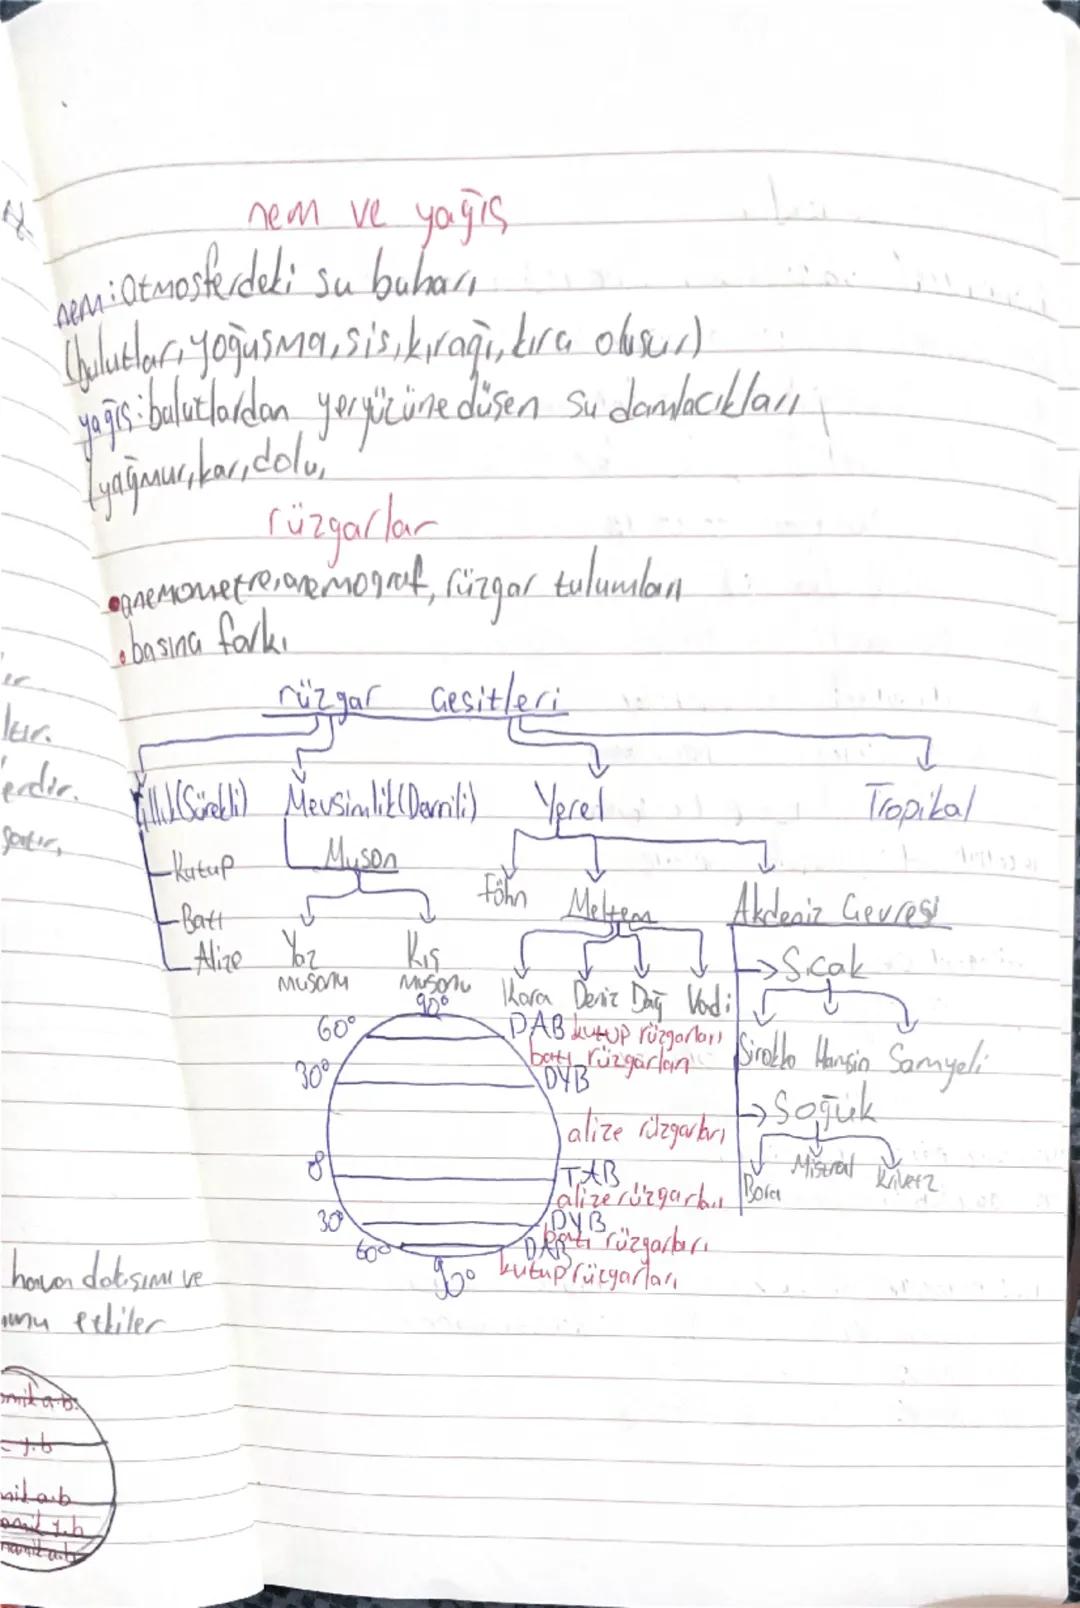 nem ve yağış
nem: atmosferdeki su buharı
(bulutlar, yoğuşma, sis, kırağı, kıra oluşur)
yağış: bulutlardan yeryüzüne düşen su damlacıkları
(yağmur, kar, dolu,
rüzgarlar
•anemometre, anemograf, rüzgar tulumları
•basınç farkı
rüzgar Çeşitleri
Yıllık(Sürekli) Mevsimlik(Devrili) Yerel Tropikal
Kutup
Batı
Alize
Muson
Yaz musonu
Kış musonu
Föhn Meltem Akdeniz Çevresi
Kara Deniz Dağ Vadi
->Sıcak
Sirokko Hamsin Samyeli
->Soğuk
Bora Mistral Krivetz
90°
60° DAB kutup rüzgarları
batı rüzgarları
30° DYB
alize rüzgarları
0° TAB
alize rüzgarları
30° DYB
batı rüzgarları
60° DAB
kutup rüzgarları
90°
er
ltır.
erdir.
şatır,
hava dolaşımı ve
unu etkiler
amik a.b.
y.b
mik a.b
amik y.b
namik a.b